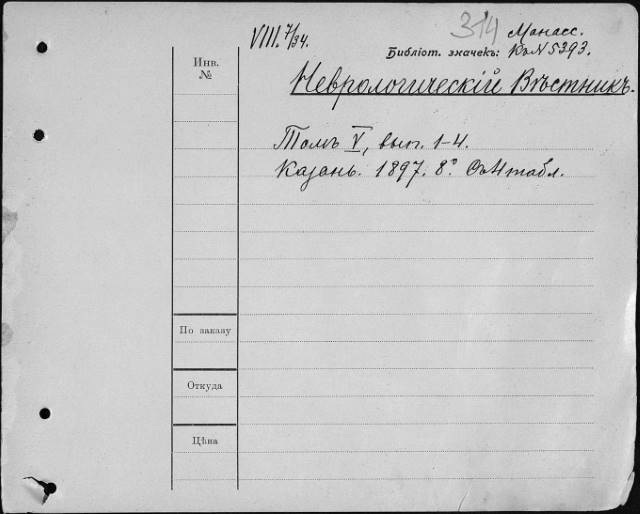 VIII. 7/34.
314
Манасс.
Библіот. значекъ: Къ N 5393.
Инв.
№
Неврологическій Вѣстникъ.
Томъ V, вып. 1-4.
Казань. 1897. 8° Съ 4 табл.
По заказу
Откуда
Цѣна